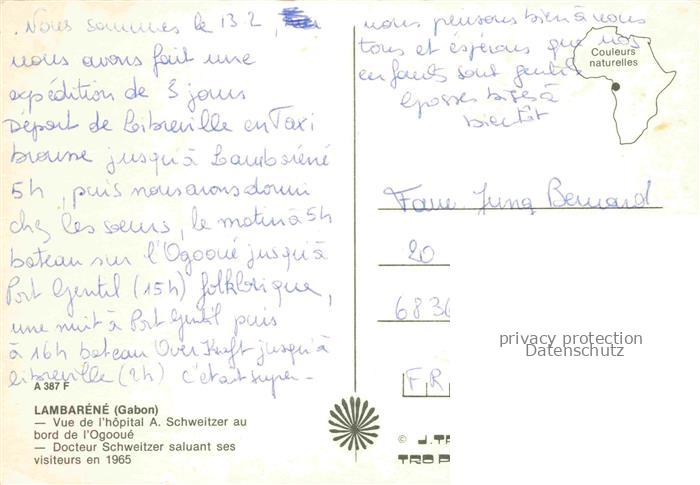 . Nous sommes le 13.2,
nous avons fait une
expédition de 3 jours
Départ de Libreville en Taxi
brousse jusqu'à Lambaréné
5h, puis nous avons dormi
chez les sœurs, le matin à 5h
bateau sur l'Ogooué jusqu'à
Port Gentil (15h) folklorique,
une nuit à Port Gentil puis
à 16h bateau OverKraft jusqu'à
libreville (2h) c'était super -
A 387 F
LAMBARÉNÉ (Gabon)
— Vue de l'hôpital A. Schweitzer au
bord de l'Ogooué
— Docteur Schweitzer saluant ses
visiteurs en 1965
nous pensons bien à vous
tous et espérons que nos
enfants sont gentils
Grosses bises à
bientôt
Couleurs
naturelles
Fam. Jung Bernard
20
6836
FR
privacy protection
Datenschutz
© J.TR
TROP